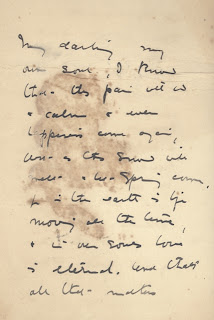 My darling my
own soul, I know
that this pain will go
& calm & even
happiness come again,
just as the snow will
melt & the Spring come,
for in the earth is life
moving all the time,
& in our souls love
is eternal. And that's
all that matters